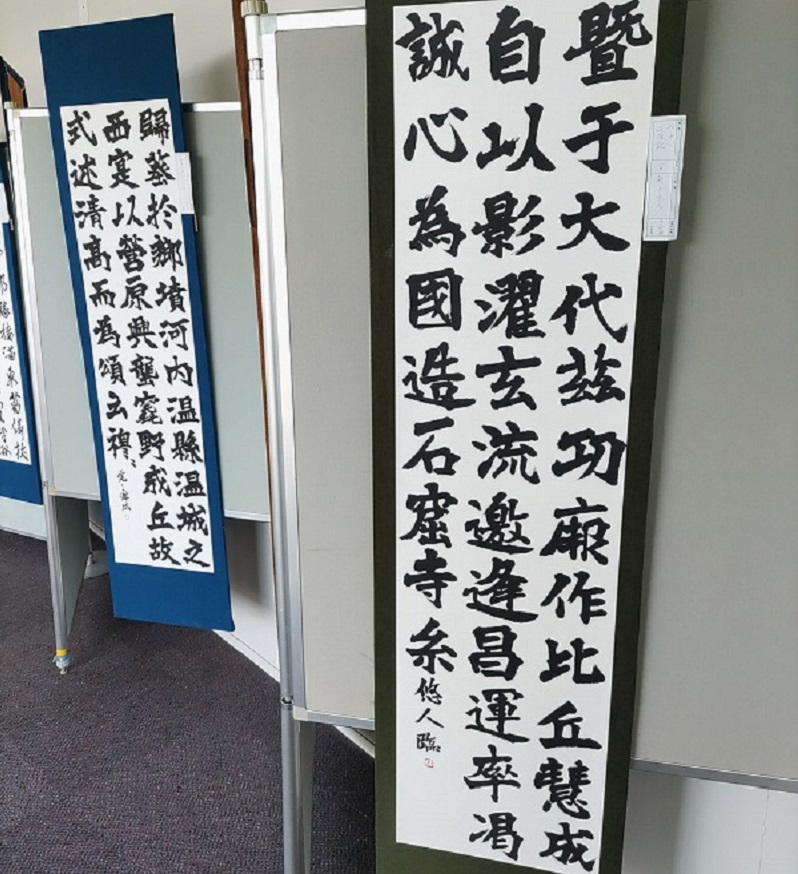 暨于大代茲功厥作比丘慧成
自以影濯玄流邀逢昌運率渇
誠心為國造石窟寺糸
悠人臨
歸葬於鄉墳河内温縣温城之
西寔以營原興壟窀野成丘故
式述清高而為頌云